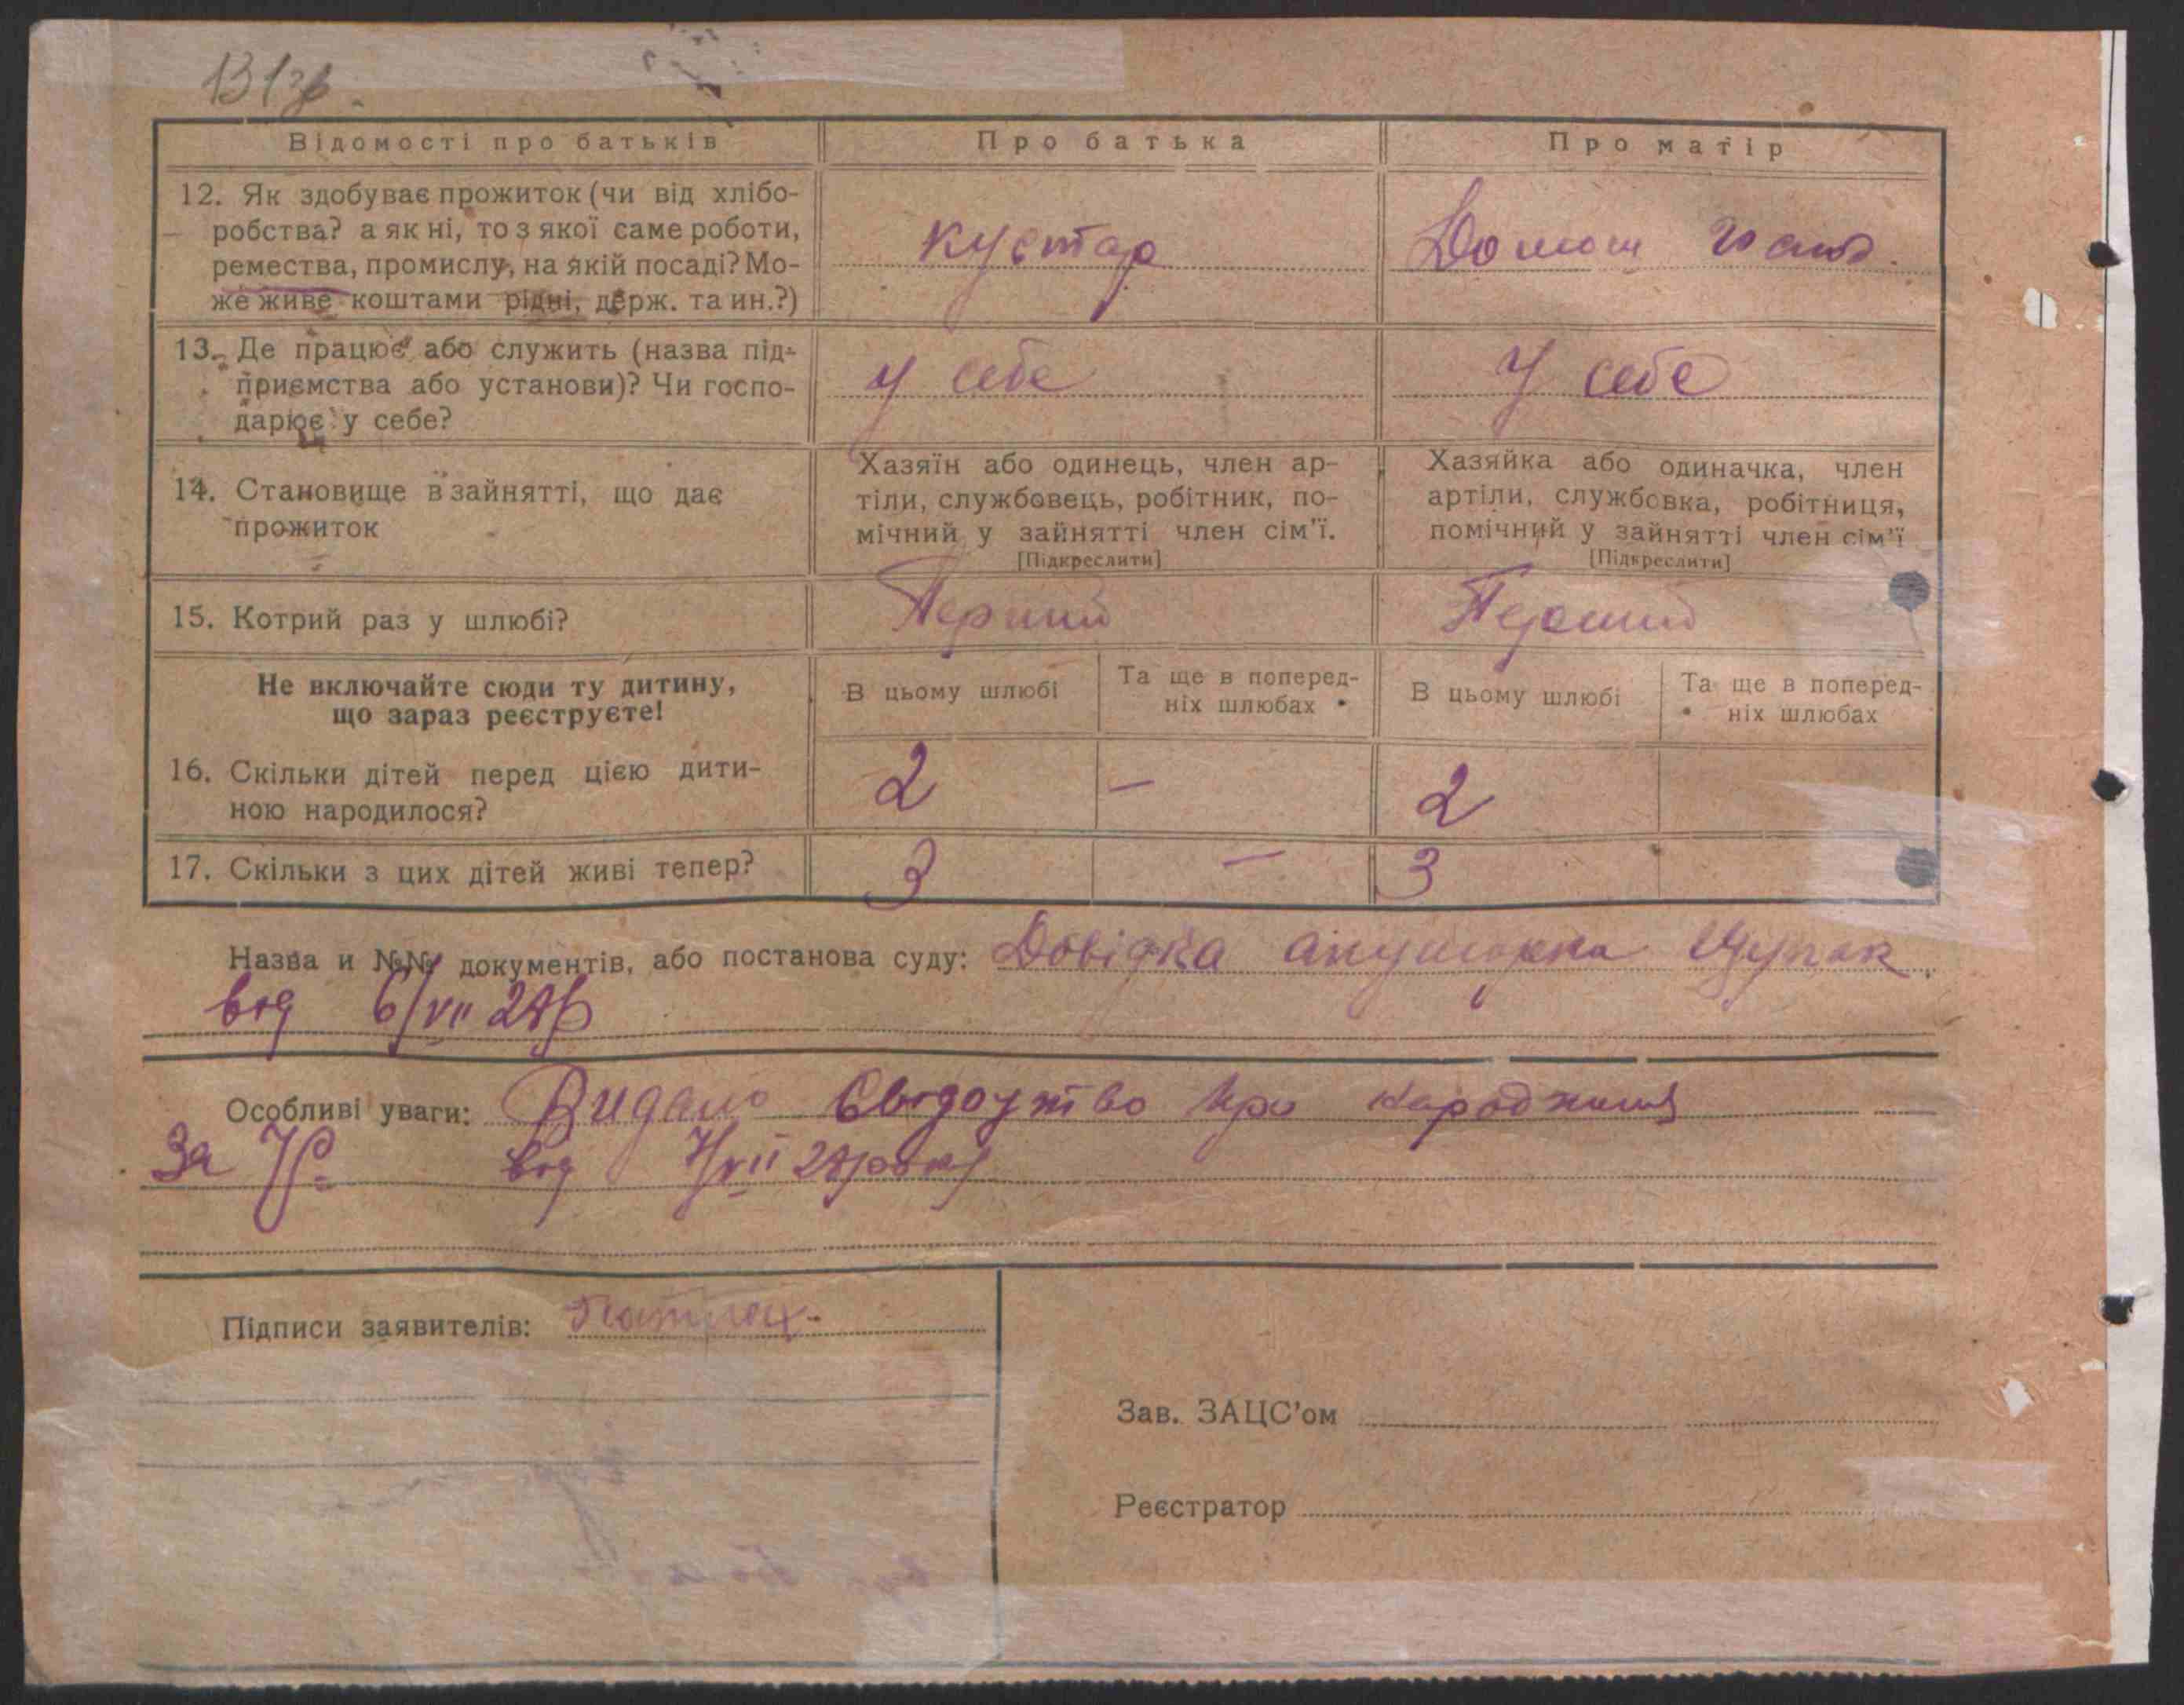 131зв.
Відомості про батьків
Про батька
Про матір
12. Як здобуває прожиток (чи від хлібо-
робства? а як ні, то з якої саме роботи,
ремества, промислу, на якій посаді? Мо-
же живе коштами рідні, держ. та ин.?)
кустар
Домаш госпо.
13. Де працює або служить (назва під-
приємства або установи)? Чи госпо-
дарює у себе?
у себе
У себе
14. Становище в зайнятті, що дає
прожиток
Хазяїн або одинець, член ар-
тіли, службовець, робітник, по-
мічний у зайнятті член сім'ї.
[Підкреслити]
Хазяйка або одиначка, член
артіли, службовка, робітниця,
помічний у зайнятті член сім'ї
[Підкреслити]
15. Котрий раз у шлюбі?
Перший
Перший
Не включайте сюди ту дитину,
що зараз реєструєте!
В цьому шлюбі
Та ще в поперед-
ніх шлюбах
В цьому шлюбі
Та ще в поперед-
ніх шлюбах
16. Скільки дітей перед цією дити-
ною народилося?
2 — 2
17. Скільки з цих дітей живі тепер?
3 — 3
Назва и №№ документів, або постанова суду: Довідка акушорки
від 6/VII 28р
Особливі уваги: Видано Свідоцтво про народження
За № від 7/VII 28 року
Підписи заявителів:
Зав. ЗАЦС'ом
Реєстратор